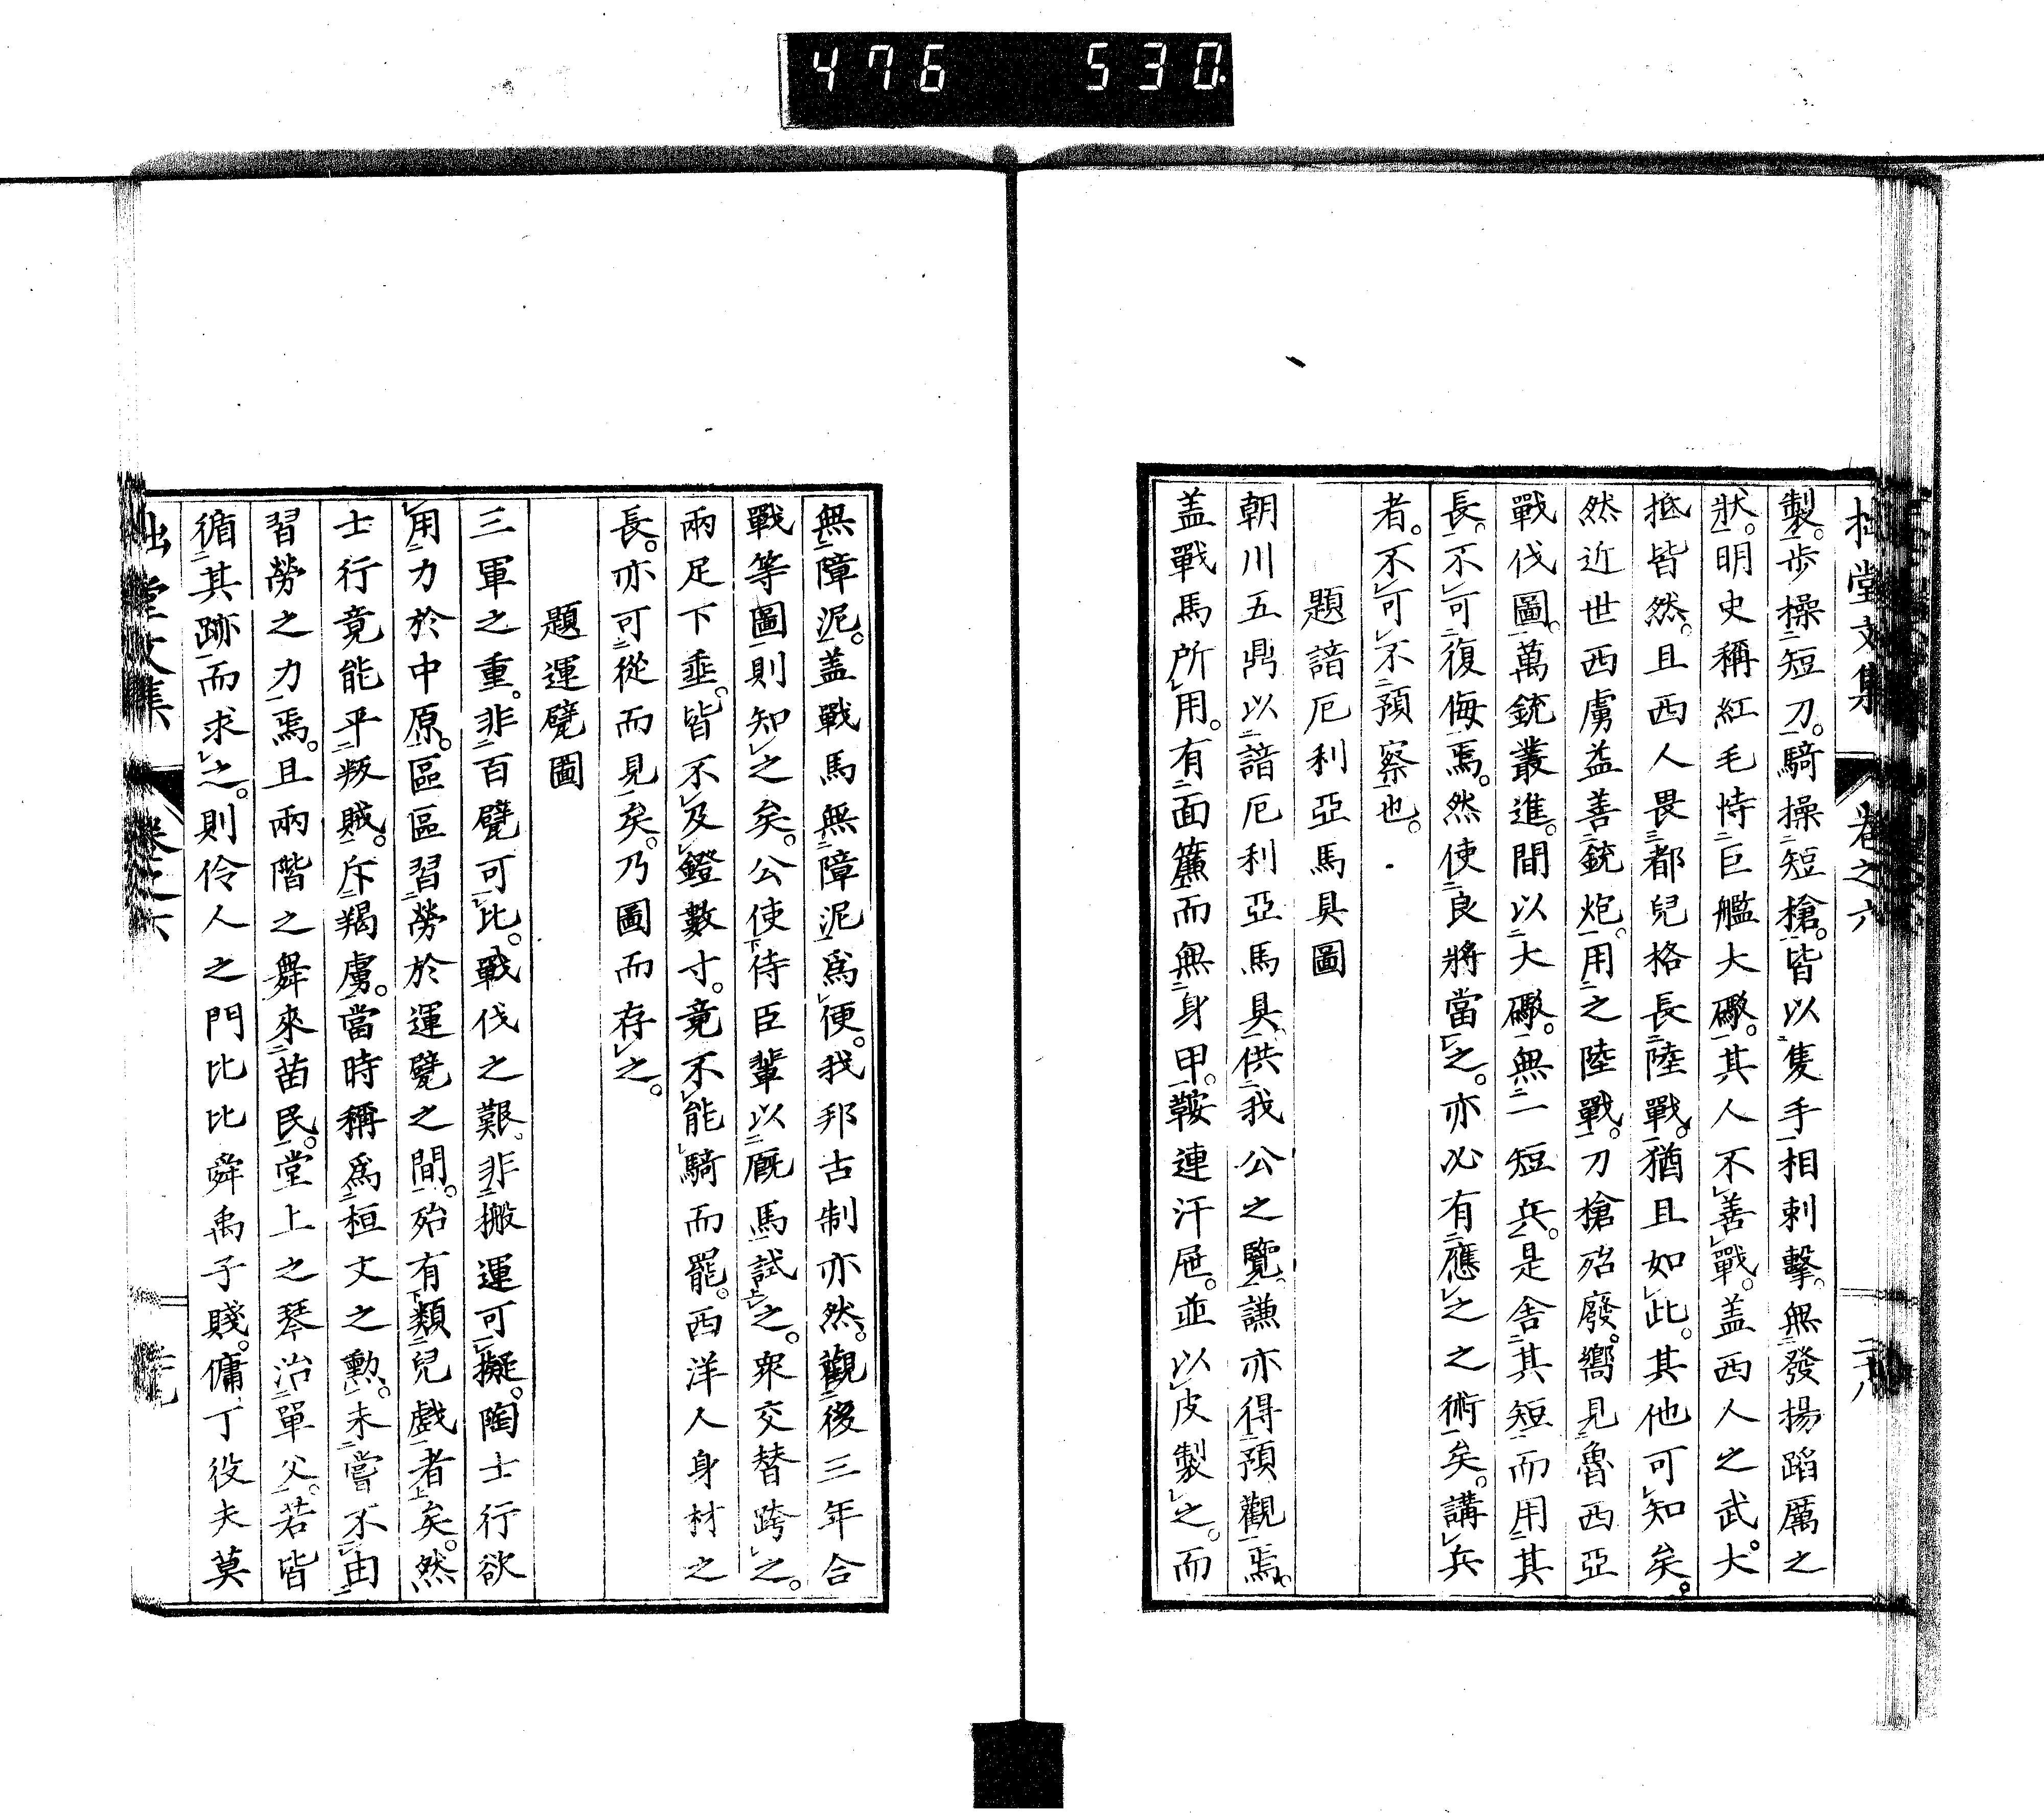 476 530
拙堂文集 卷之六
製。步操短刀。騎操短槍。皆以隻手相刺擊。無發揚蹈厲之
狀。明史稱紅毛恃巨艦大礮。其人不善戰。盖西人之武。大
抵皆然。且西人畏都兒格長陸戰。猶且如此。其他可知矣。
然近世西虜益善銃炮。用之陸戰。刀槍殆廢。嚮見魯西亞
戰伐圖。萬銃叢進。間以大礮。無一短兵。是舍其短而用其
長。不可復侮焉。然使良將當之。亦必有應之之術矣。講兵
者。不可不預察也。
題諳厄利亞馬具圖
朝川五鼎以諳厄利亞馬具、供我公之覽、謙亦得預觀焉。
盖戰馬所用。有面簾而無身甲。鞍連汗屜。並以皮製之。而
無障泥。盖戰馬無障泥爲便。我邦古制亦然。觀後三年合
戰等圖則知之矣。公使侍臣輩以廐馬試之。衆交替跨之。
兩足下垂。皆不及鐙數寸。竟不能騎而罷。西洋人身材之
長。亦可從而見矣。乃圖而存之。
題運甓圖
三軍之重。非百甓可比。戰伐之艱。非搬運可擬。陶士行欲
用力於中原。區區習勞於運甓之間。殆有類兒戲者矣。然
士行竟能平叛賊。斥羯虜。當時稱爲桓文之勳。未嘗不由
習勞之力焉。且兩階之舞來苗民。堂上之琴治單父。若皆
循其跡而求之。則伶人之門比比舜禹子賤。傭丁役夫莫
拙堂文集 卷之六